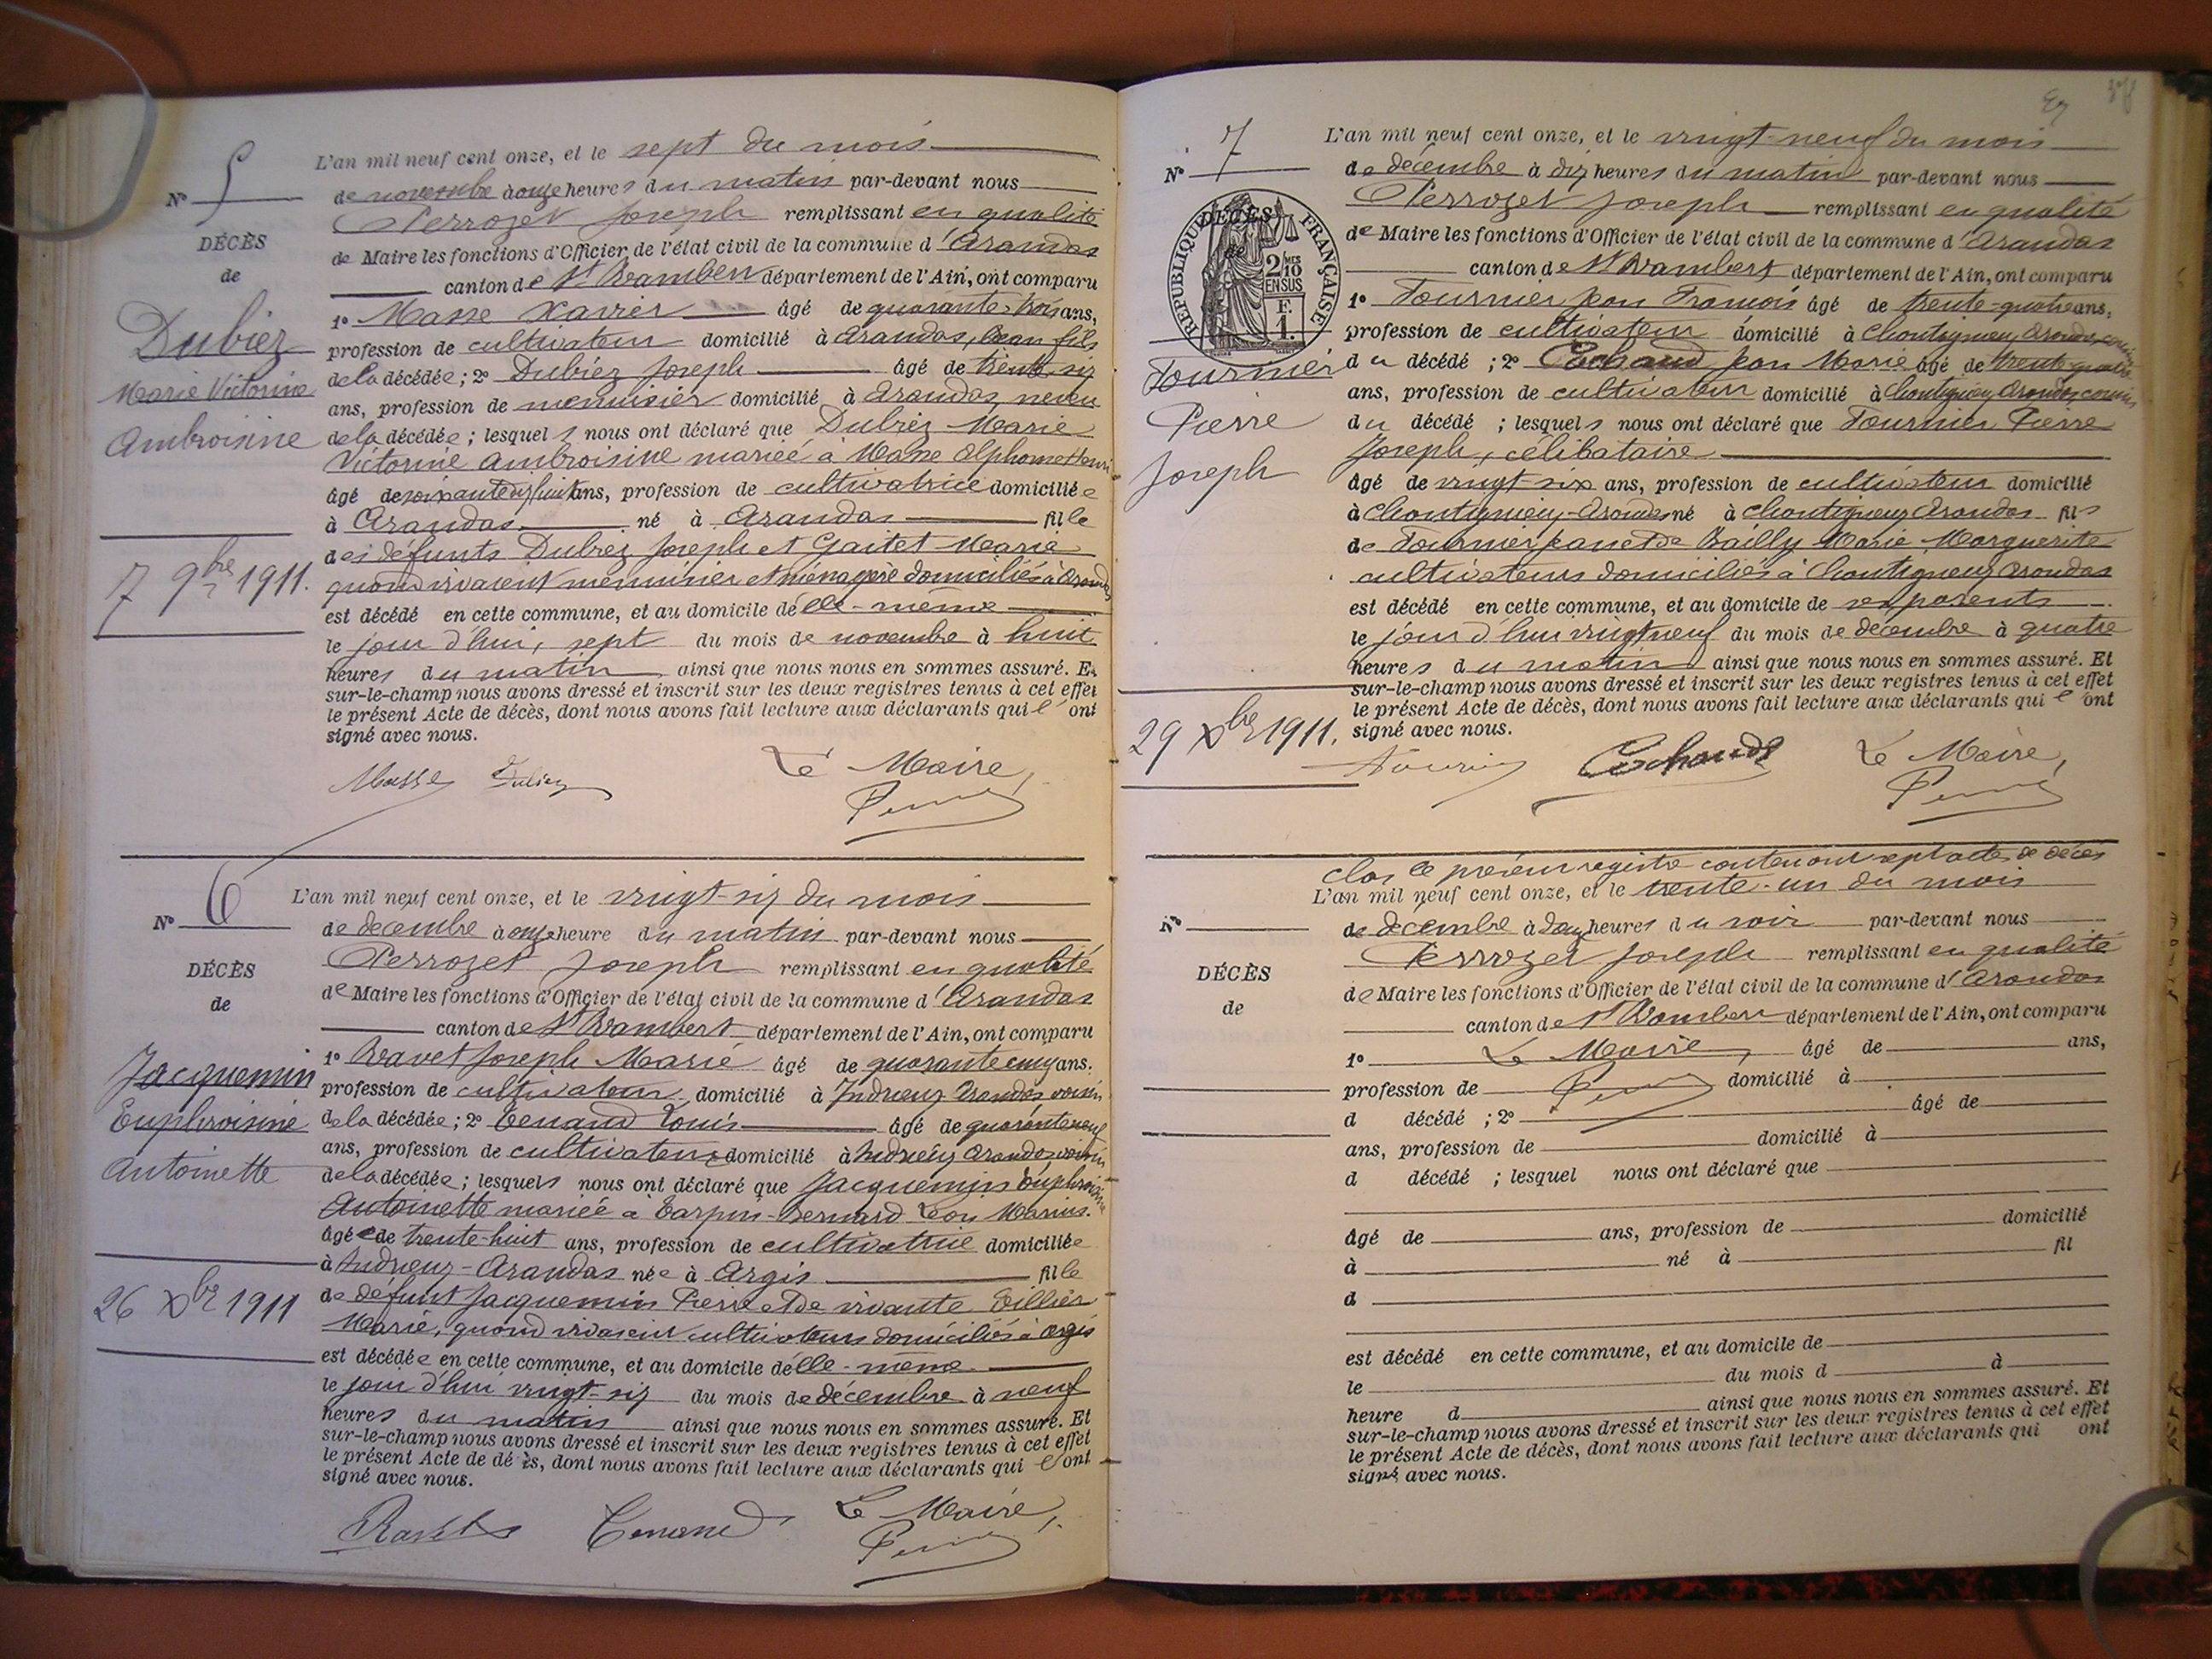 L'an mil neuf cent onze, et le sept du mois
de novembre à onze heures du matin par-devant nous
Perrozet Joseph remplissant en qualité
de Maire les fonctions d'Officier de l'état civil de la commune d'Arandas
canton de St Rambert département de l'Ain, ont comparu
1° Masse Xavier âgé de quarante-trois ans,
profession de cultivateur domicilié à Arandas, beau fils
de la décédée ; 2° Dubiez Joseph âgé de trente six
ans, profession de menuisier domicilié à Arandas, neveu
de la décédée ; lesquels nous ont déclaré que Dubiez Marie
Victorine Ambroisine mariée à Masse Alphonse Henri
âgé de soixante dix huit ans, profession de cultivatrice domiciliée
à Arandas né à Arandas fille
des défunts Dubiez Joseph et Gaitet Marie
quand vivaient menuisier et ménagère domiciliés à Arandas
est décédé en cette commune, et au domicile d'elle-même
le jour d'hui, sept du mois de novembre à huit
heures du matin ainsi que nous nous en sommes assuré. Et
sur-le-champ nous avons dressé et inscrit sur les deux registres tenus à cet effet
le présent Acte de décès, dont nous avons fait lecture aux déclarants qui l'ont
signé avec nous.
Masse Dubiez Le Maire,
N° 5
DÉCÈS
de
Dubiez
Marie Victorine
Ambroisine
7 9bre 1911.
N° 6
DÉCÈS
de
Jacquemin
Euphroisine
Antoinette
26 Xbre 1911
L'an mil neuf cent onze, et le vingt-six du mois
de décembre à onze heure du matin par-devant nous
Perrozet Joseph remplissant en qualité
de Maire les fonctions d'Officier de l'état civil de la commune d'Arandas
canton de St Rambert département de l'Ain, ont comparu
1° Ravet Joseph Marie âgé de quarante cinq ans.
profession de cultivateur domicilié à Indrieux Arandas voisin
de la décédée ; 2° Tenand Louis âgé de quarante neuf
ans, profession de cultivateur domicilié à Indrieux Arandas voisin
de la décédée ; lesquels nous ont déclaré que Jacquemin Euphroisine
Antoinette mariée à Carpin-Bernard Léon Marius.
âgée de trente-huit ans, profession de cultivatrice domiciliée
à Indrieux-Arandas née à Argis fille
de défunt Jacquemin Pierre et de vivante Villier
Marie, quand vivaient cultivateurs domiciliés à Argis
est décédée en cette commune, et au domicile d'elle-même
le jour d'hui vingt-six du mois de décembre à neuf
heures du matin ainsi que nous nous en sommes assuré. Et
sur-le-champ nous avons dressé et inscrit sur les deux registres tenus à cet effet
le présent Acte de décès, dont nous avons fait lecture aux déclarants qui l'ont
signé avec nous.
Ravet Tenand Le Maire,
N° 7
DÉCÈS
de
RÉPUBLIQUE FRANÇAISE
2/10MES
EN SUS
F.
1.
Fournier
Pierre
Joseph
29 Xbre 1911.
L'an mil neuf cent onze, et le vingt-neuf du mois
de décembre à dix heures du matin par-devant nous
Perrozet Joseph remplissant en qualité
de Maire les fonctions d'Officier de l'état civil de la commune d'Arandas
canton de St Rambert département de l'Ain, ont comparu
1° Fournier Jean François âgé de trente-quatre ans,
profession de cultivateur domicilié à Chantignieu Arandas, cousin
du décédé ; 2° Cochaud Jean Marie âgé de trente quatre
ans, profession de cultivateur domicilié à Chantignieu Arandas cousin
du décédé ; lesquels nous ont déclaré que Fournier Pierre
Joseph, célibataire
âgé de vingt six ans, profession de cultivateur domicilié
à Chantignieu-Arandas né à Chantignieu Arandas fils
de Fournier Jean et de Bailly Marie Marguerite
cultivateurs domiciliés à Chantignieu Arandas
est décédé en cette commune, et au domicile de ses parents
le jour d'hui vingt neuf du mois de décembre à quatre
heures du matin ainsi que nous nous en sommes assuré. Et
sur-le-champ nous avons dressé et inscrit sur les deux registres tenus à cet effet
le présent Acte de décès, dont nous avons fait lecture aux déclarants qui l'ont
signé avec nous.
Fournier Cochaud Le Maire,
Clos le présent registre contenant sept actes de décès
L'an mil neuf cent onze, et le trente-un du mois
de décembre à deux heures du soir par-devant nous
Perrozet Joseph remplissant en qualité
de Maire les fonctions d'Officier de l'état civil de la commune d'Arandas
canton de St Rambert département de l'Ain, ont comparu
1° Le Maire, âgé de ans,
profession de domicilié à
d décédé ; 2° âgé de
ans, profession de domicilié à
d décédé ; lesquel nous ont déclaré que
âgé de ans, profession de domicilié
à né à fil
d
est décédé en cette commune, et au domicile de
le du mois d à
heure d ainsi que nous nous en sommes assuré. Et
sur-le-champ nous avons dressé et inscrit sur les deux registres tenus à cet effet
le présent Acte de décès, dont nous avons fait lecture aux déclarants qui ont
signé avec nous.
N°
DÉCÈS
de